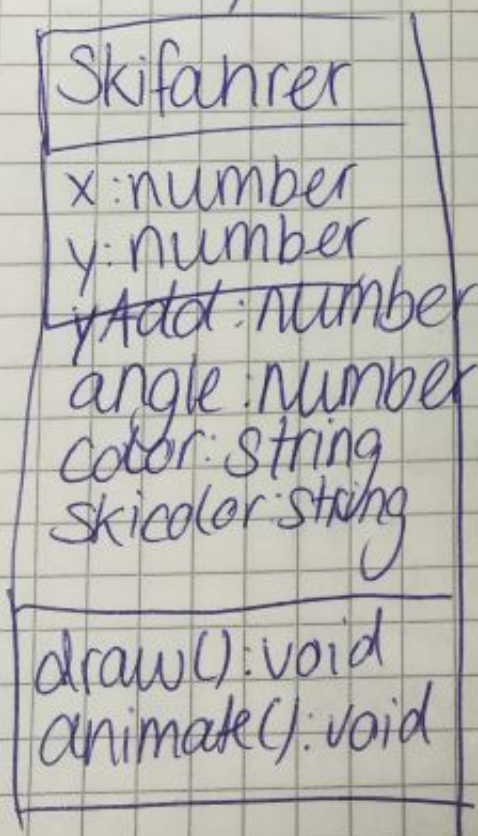 Skifahrer
x:number
y:number
yAdd:number
angle:number
color:string
skicolor:string
draw():void
animate():void